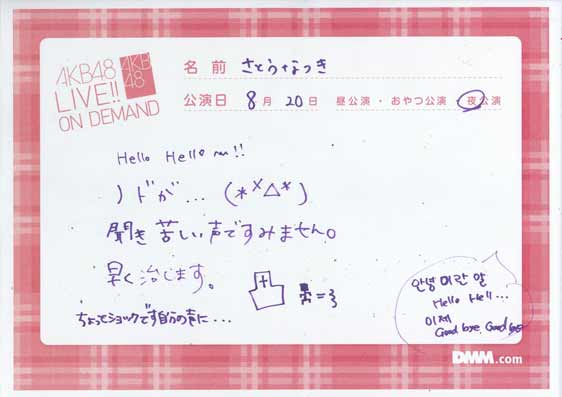 AKB48
LIVE!!
ON DEMAND
AKB
48
名前 さとうなつき
公演日 8月 20日 昼公演・おやつ公演・夜公演
Hello Hello !!
ノドが... (*×△*)
聞き苦しい声ですみません。
早く治します。
ちょっとショックです自分の声に...
안녕이란 말
Hello Hell...
이제
Good bye Good bye
DMM.com